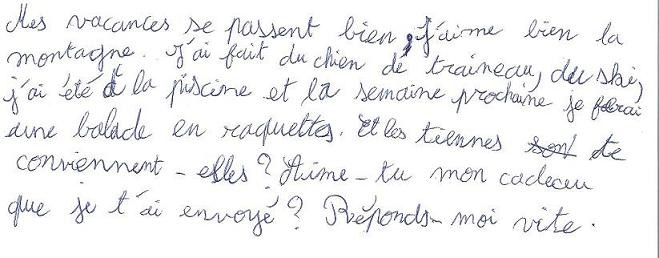 Mes vacances se passent bien, j'aime bien la
montagne. J'ai fait du chien de traineau, du ski,
j'ai été à la piscine et la semaine prochaine je ferai
une balade en raquettes. Et les tiennes te
conviennent-elles ? Aime-tu mon cadeau
que je t'ai envoyé ? Réponds-moi vite.